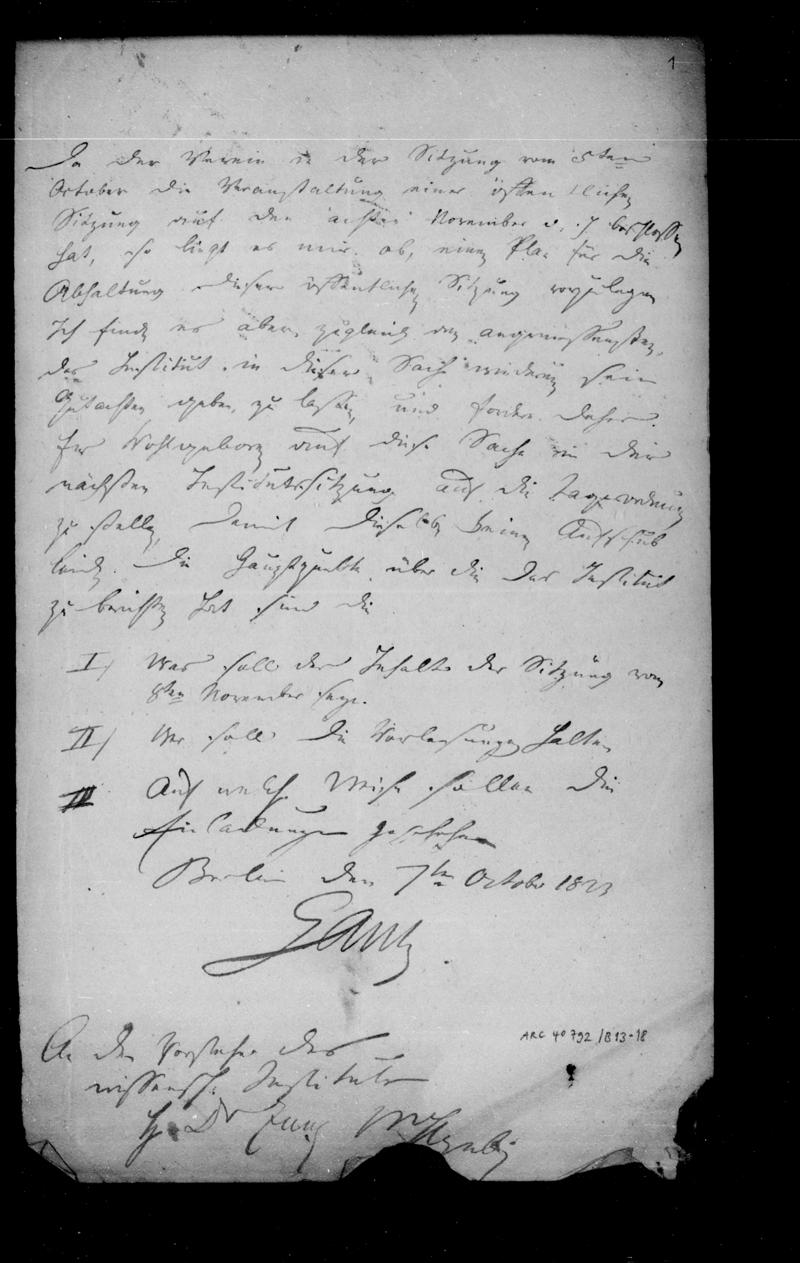 1
Da der Verein in der Sitzung vom 5ten
October die Veranstaltung einer öffentlichen
Sitzung auf den achten November d. J. beschlossen
hat, so liegt es mir ob, einen Plan für die
Abhaltung dieser öffentlichen Sitzung vorzulegen
Ich finde es aber zugleich am angemessensten,
das Institut in dieser Sache sein
Gutachten geben zu lassen, und fordere daher
Ew Wohlgeboren auf diese Sache in der
nächsten Institutssitzung auf die Tagesordnung
zu stellen, damit dieselbe keinen Aufschub
leide. Die Hauptpunkte über die das Institut
zu berichten hat sind die
I) Was soll der Inhalt der Sitzung vom
8ten November seyn.
II) Wer soll die Vorlesungen halten
III Auf welche Weise sollen die
Einladungen geschehen
Berlin den 7ten October 1823
Gans
ARC 4º 792 / B 13-18
An den Vorsteher des
wissensch. Instituts
H. Dr Zunz